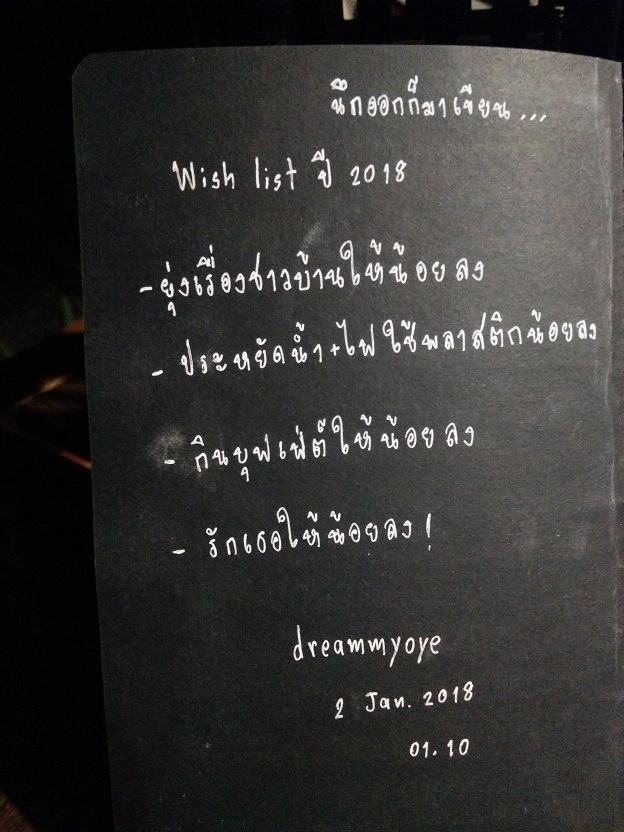 นึกออกก็มาเขียน...
Wish list ปี 2018
- ยุ่งเรื่องชาวบ้านให้น้อยลง
- ประหยัดน้ำ+ไฟ ใช้พลาสติกน้อยลง
- กินบุฟเฟ่ต์ให้น้อยลง
- รักเธอให้น้อยลง!
dreammyoye
2 Jan. 2018
01.10